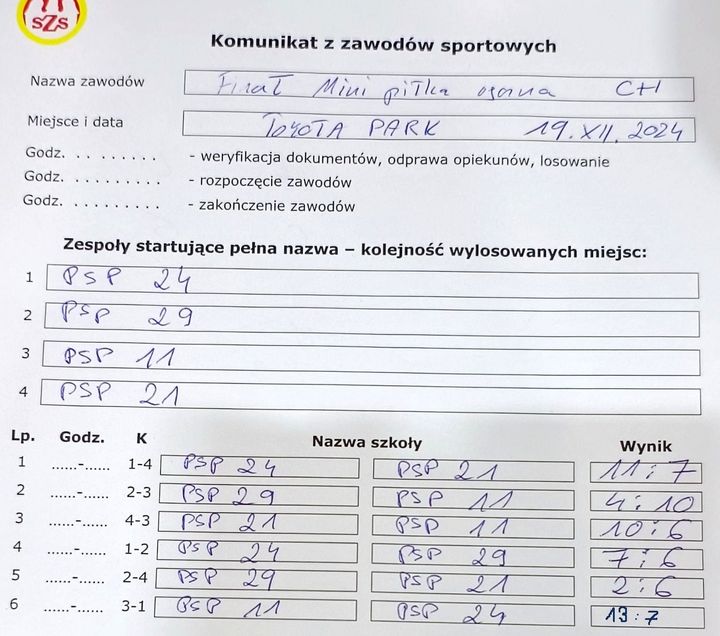 SZS
Komunikat z zawodów sportowych
Nazwa zawodów Finał Mini piłka ręczna CH
Miejsce i data TOYOTA PARK 19.XII.2024
Godz. . . . . . . . . . - weryfikacja dokumentów, odprawa opiekunów, losowanie
Godz. . . . . . . . . . - rozpoczęcie zawodów
Godz. . . . . . . . . . - zakończenie zawodów
Zespoły startujące pełna nazwa – kolejność wylosowanych miejsc:
1 PSP 24
2 PSP 29
3 PSP 11
4 PSP 21
Lp. Godz. K Nazwa szkoły Wynik
1 ......-...... 1-4 PSP 24 PSP 21 11:7
2 ......-...... 2-3 PSP 29 PSP 11 4:10
3 ......-...... 4-3 PSP 21 PSP 11 10:6
4 ......-...... 1-2 PSP 24 PSP 29 7:6
5 ......-...... 2-4 PSP 29 PSP 21 2:6
6 ......-...... 3-1 PSP 11 PSP 24 13:7